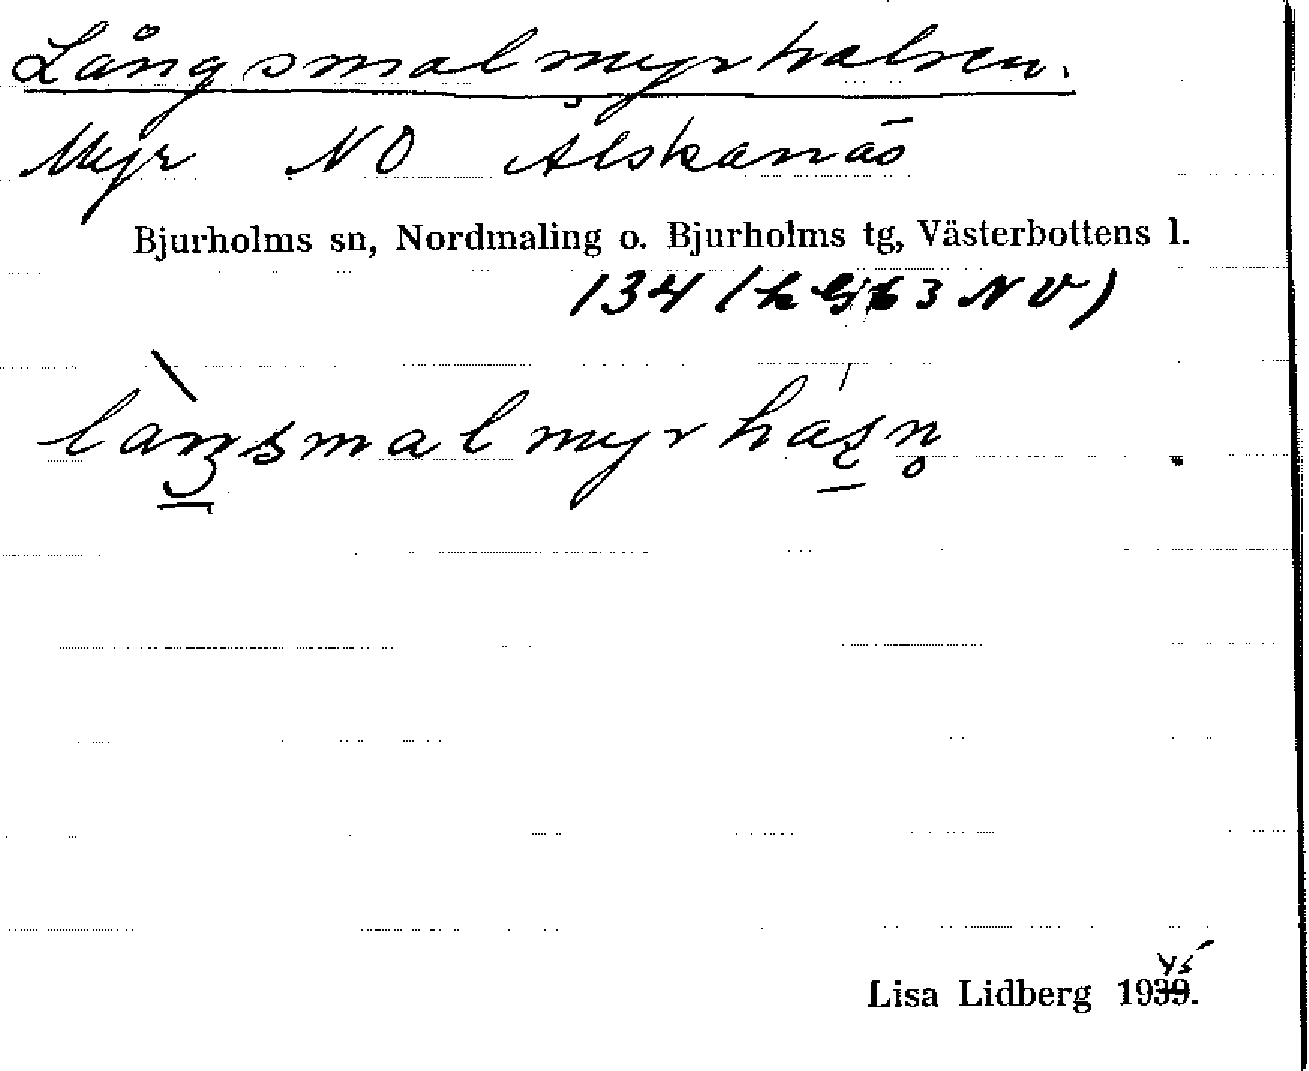 Långsmalmyrhalsen.
Myr NO Ålskanäs
Bjurholms sn, Nordmaling o. Bjurholms tg, Västerbottens l.
134 (h 3 NV)
långsmalmyrhaʂn̥
Lisa Lidberg 1939. 45